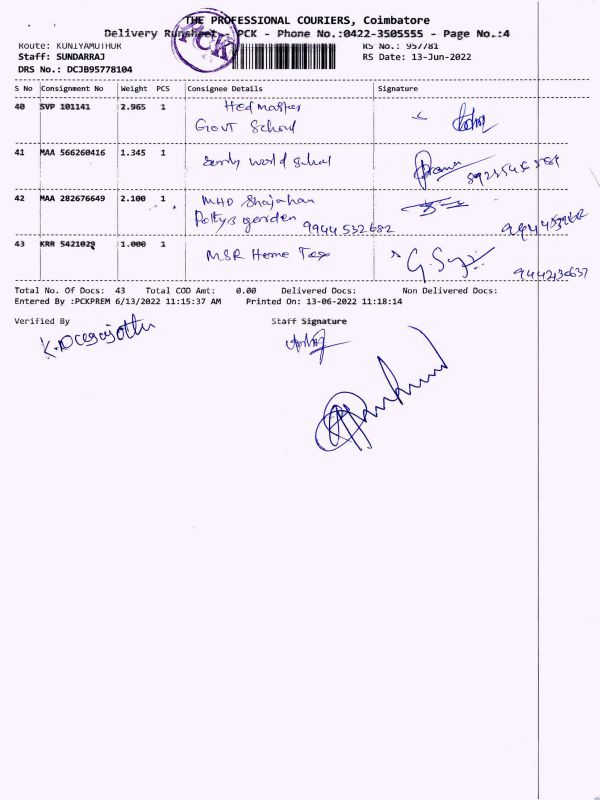 THE PROFESSIONAL COURIERS, Coimbatore
Delivery Runsheet - PCK - Phone No.:0422-3505555 - Page No.:4
PCK
Route: KUNIYAMUTHUR RS No.: 957781
Staff: SUNDARRAJ RS Date: 13-Jun-2022
DRS No.: DCJB95778104
S No Consignment No Weight PCS Consignee Details Signature
40 SVP 101141 2.965 1 Hed master
Govt School
41 MAA 566260416 1.345 1 world school
42 MAA 282676649 2.100 1 MHD Shajahan
garden 9944532682
43 KRR 5421029 1.000 1 MSR Home Tex G.
Total No. Of Docs: 43 Total COD Amt: 0.00 Delivered Docs: Non Delivered Docs:
Entered By :PCKPREM 6/13/2022 11:15:37 AM Printed On: 13-06-2022 11:18:14
Verified By Staff Signature